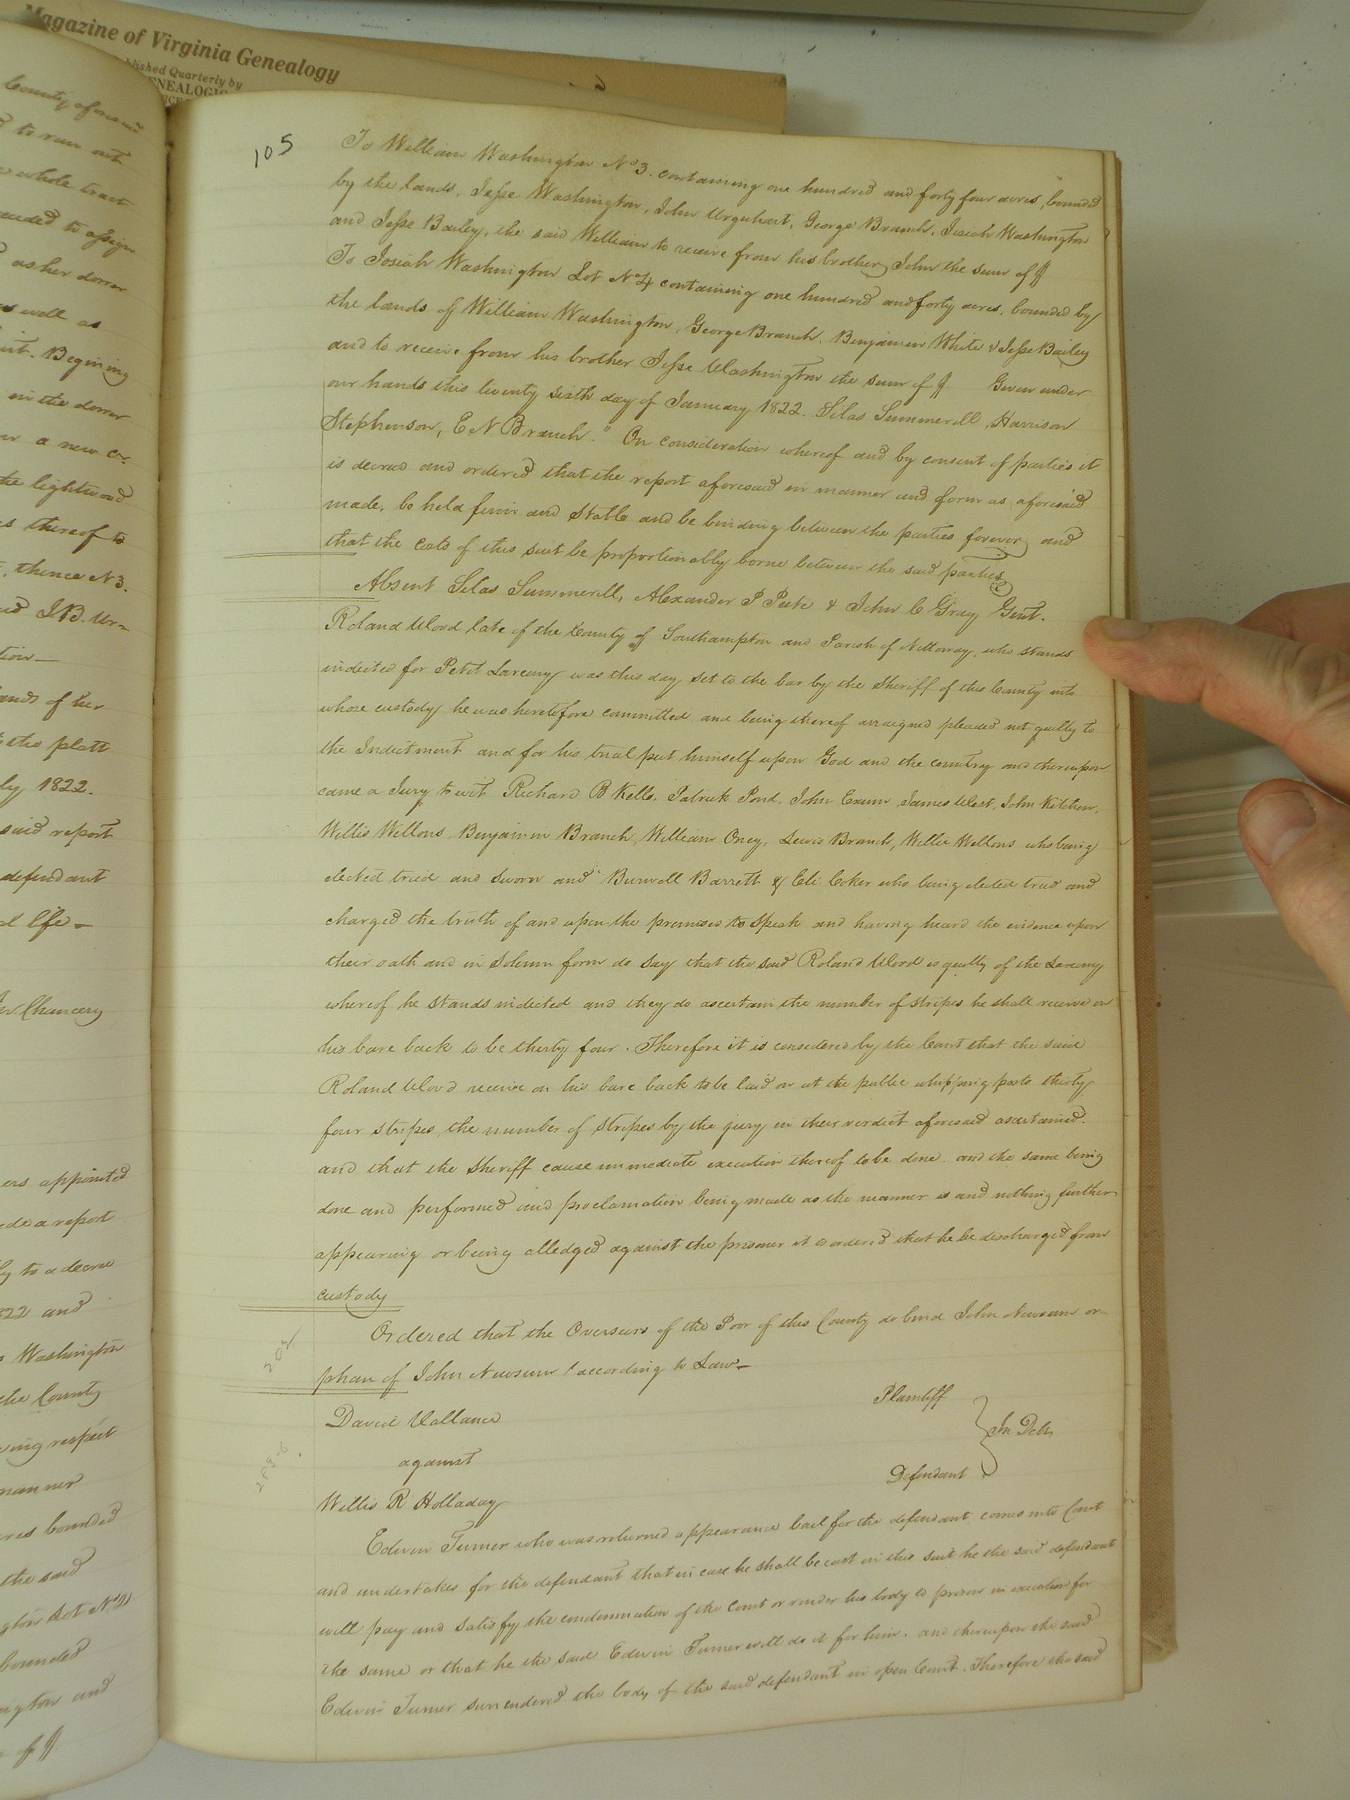 Magazine of Virginia Genealogy
Published Quarterly by
GENEALOGIC
105
To William Washington No 3. containing one hundred and forty four acres, bounded
by the lands, Jesse Washington, John Urquhart, George Branch, Josiah Washington
and Jesse Bailey, the said William to receive from his brother John the sum of $
To Josiah Washington Lot No 4 containing one hundred and forty acres, bounded by
the lands of William Washington, George Branch, Benjamin White & Jesse Bailey
and to receive from his brother Jesse Washington the sum of $ Given under
our hands this twenty sixth day of January 1822. Silas Summerell, Harrison
Stephenson, E N Branch." On consideration whereof and by consent of parties it
is decreed and ordered that the report aforesaid in manner and form as aforesaid
made, be held firm and stable and be binding between the parties forever and
that the costs of this suit be proportionably borne between the said parties
Absent Silas Summerell, Alexander P Peete & John C Gray Gent.
Roland Wood late of the County of Southampton and Parish of Nottoway, who stands
indicted for Petit Larceny was this day set to the bar by the Sheriff of this County into
whose custody he was heretofore committed and being thereof arraigned pleaded not guilty to
the Indictment and for his trial put himself upon God and the country and thereupon
came a Jury to wit Richard B Kello, Patrick Pond, John Exum, James West, John Kitchen,
Willis Wellons, Benjamin Branch, William Oney, Lewis Branch, Willie Wellons who being
elected tried and sworn and Burwell Barrett & Eli Coker who being elected tried and
charged the truth of and upon the premises to speak and having heard the evidence upon
their oath and in solemn form do say that the said Roland Wood is guilty of the Larceny
whereof he stands indicted and they do ascertain the number of stripes he shall receive on
his bare back to be thirty four. Therefore it is considered by the Court that the said
Roland Wood receive on his bare back to be laid on at the public whipping posts thirty
four stripes, the number of stripes by the jury in their verdict aforesaid ascertained.
and that the Sheriff cause immediate execution thereof to be done. and the same being
done and performed and proclamation being made as the manner is and nothing further
appearing or being alledged against the prisoner it is ordered that he be discharged from
custody
Ordered that the Overseers of the Poor of this County do bind John Newsum or-
phan of John Newsum according to Law
David Vallance Plaintiff
against In Debt
Willis R Holladay Defendant
Edwin Turner who was returned appearance bail for the defendant comes into Court
and undertakes for the defendant that in case he shall be cast in this suit he the said defendant
will pay and satisfy the condemnation of the Court or render his body to prison in execution for
the same or that he the said Edwin Turner will do it for him. and thereupon the said
Edwin Turner surrendered the body of the said defendant in open Court. Therefore the said